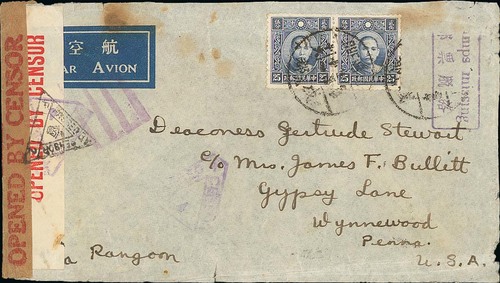 OPENED BY CENSOR
OPENED BY CENSOR
空 航
AR AVION
25 25
mps missing
Deaconess Gertrude Stewart
c/o Mrs. James F. Bullitt
Gypsy Lane
Wynnewood
Penna.
U.S.A.
a Rangoon